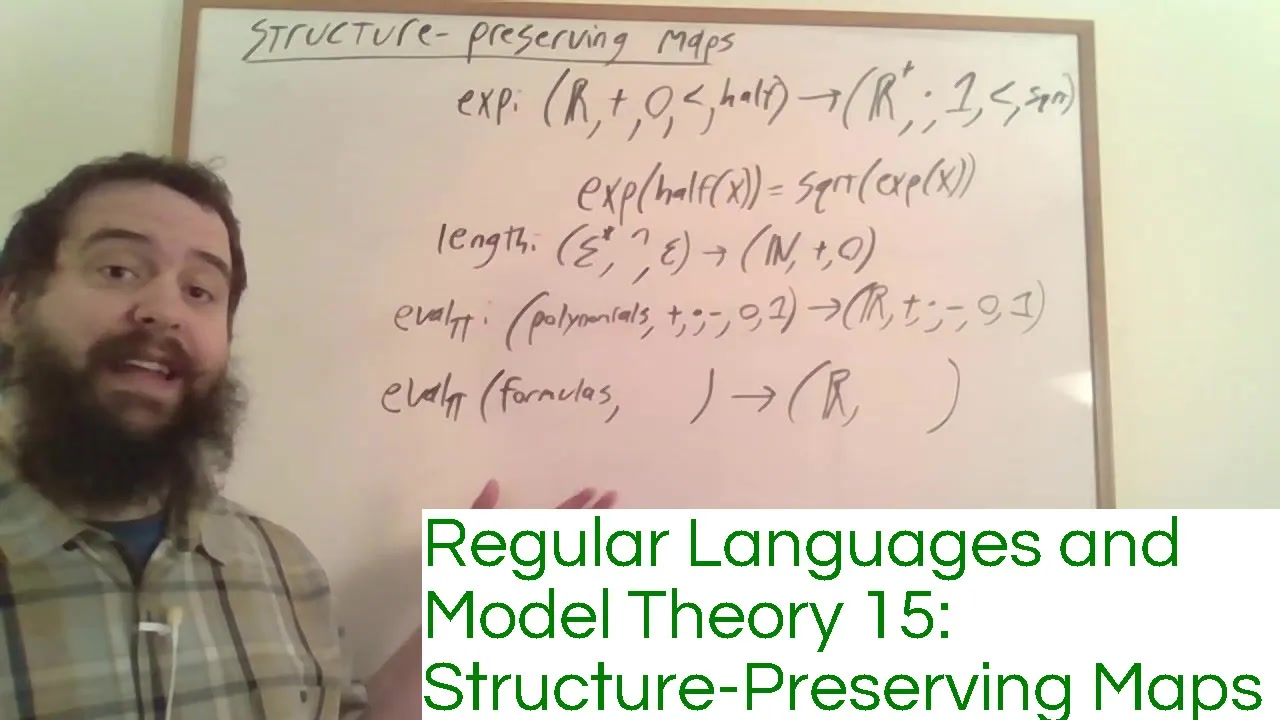 Structure-preserving maps
exp: (ℝ, +, 0, <, half) → (ℝ⁺, ·, 1, <, sqrt)
exp(half(x)) = sqrt(exp(x))
length: (Σ*, ⌢, ε) → (ℕ, +, 0)
evalπ: (polynomials, +, ·, -, 0, 1) → (ℝ, +, ·, -, 0, 1)
evalπ (formulas, ) → (ℝ, )
Regular Languages and
Model Theory 15:
Structure-Preserving Maps